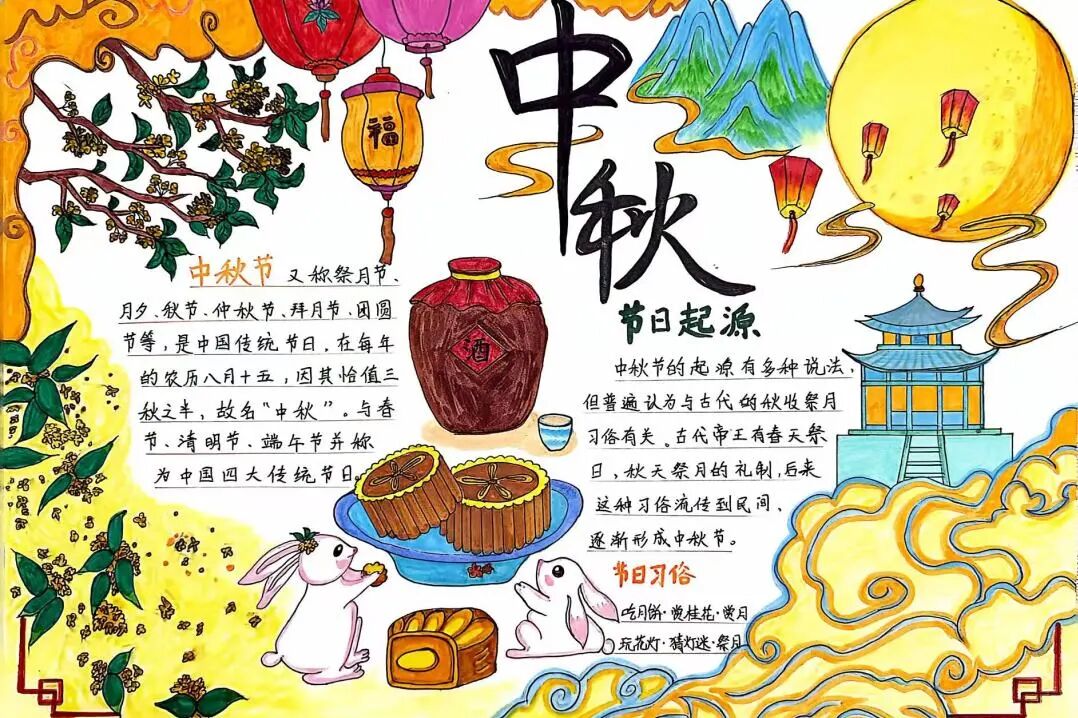 中秋
福
酒
中秋节 又称祭月节、
月夕、秋节、仲秋节、拜月节、团圆
节等，是中国传统节日，在每年
的农历八月十五，因其恰值三
秋之半，故名“中秋”。与春
节、清明节、端午节并称
为中国四大传统节日。
节日起源
中秋节的起源有多种说法，
但普遍认为与古代的秋收祭月
习俗有关。古代帝王有春天祭
日，秋天祭月的礼制，后来
这种习俗流传到民间、
逐渐形成中秋节。
节日习俗
吃月饼·赏桂花·赏月
玩花灯·猜灯迷·祭月